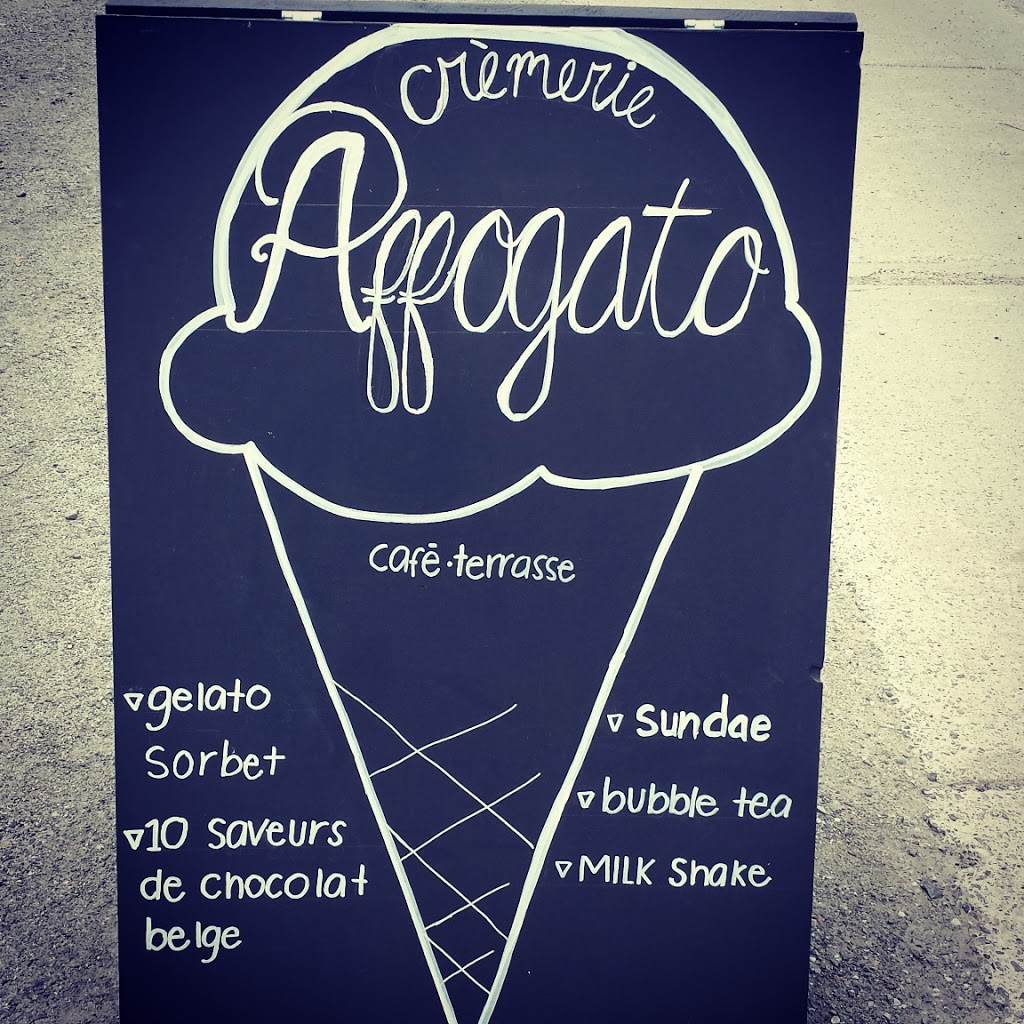 crèmerie
Affogato
café·terrasse
gelato
sorbet
10 saveurs
de chocolat
belge
Sundae
bubble tea
MILK Shake